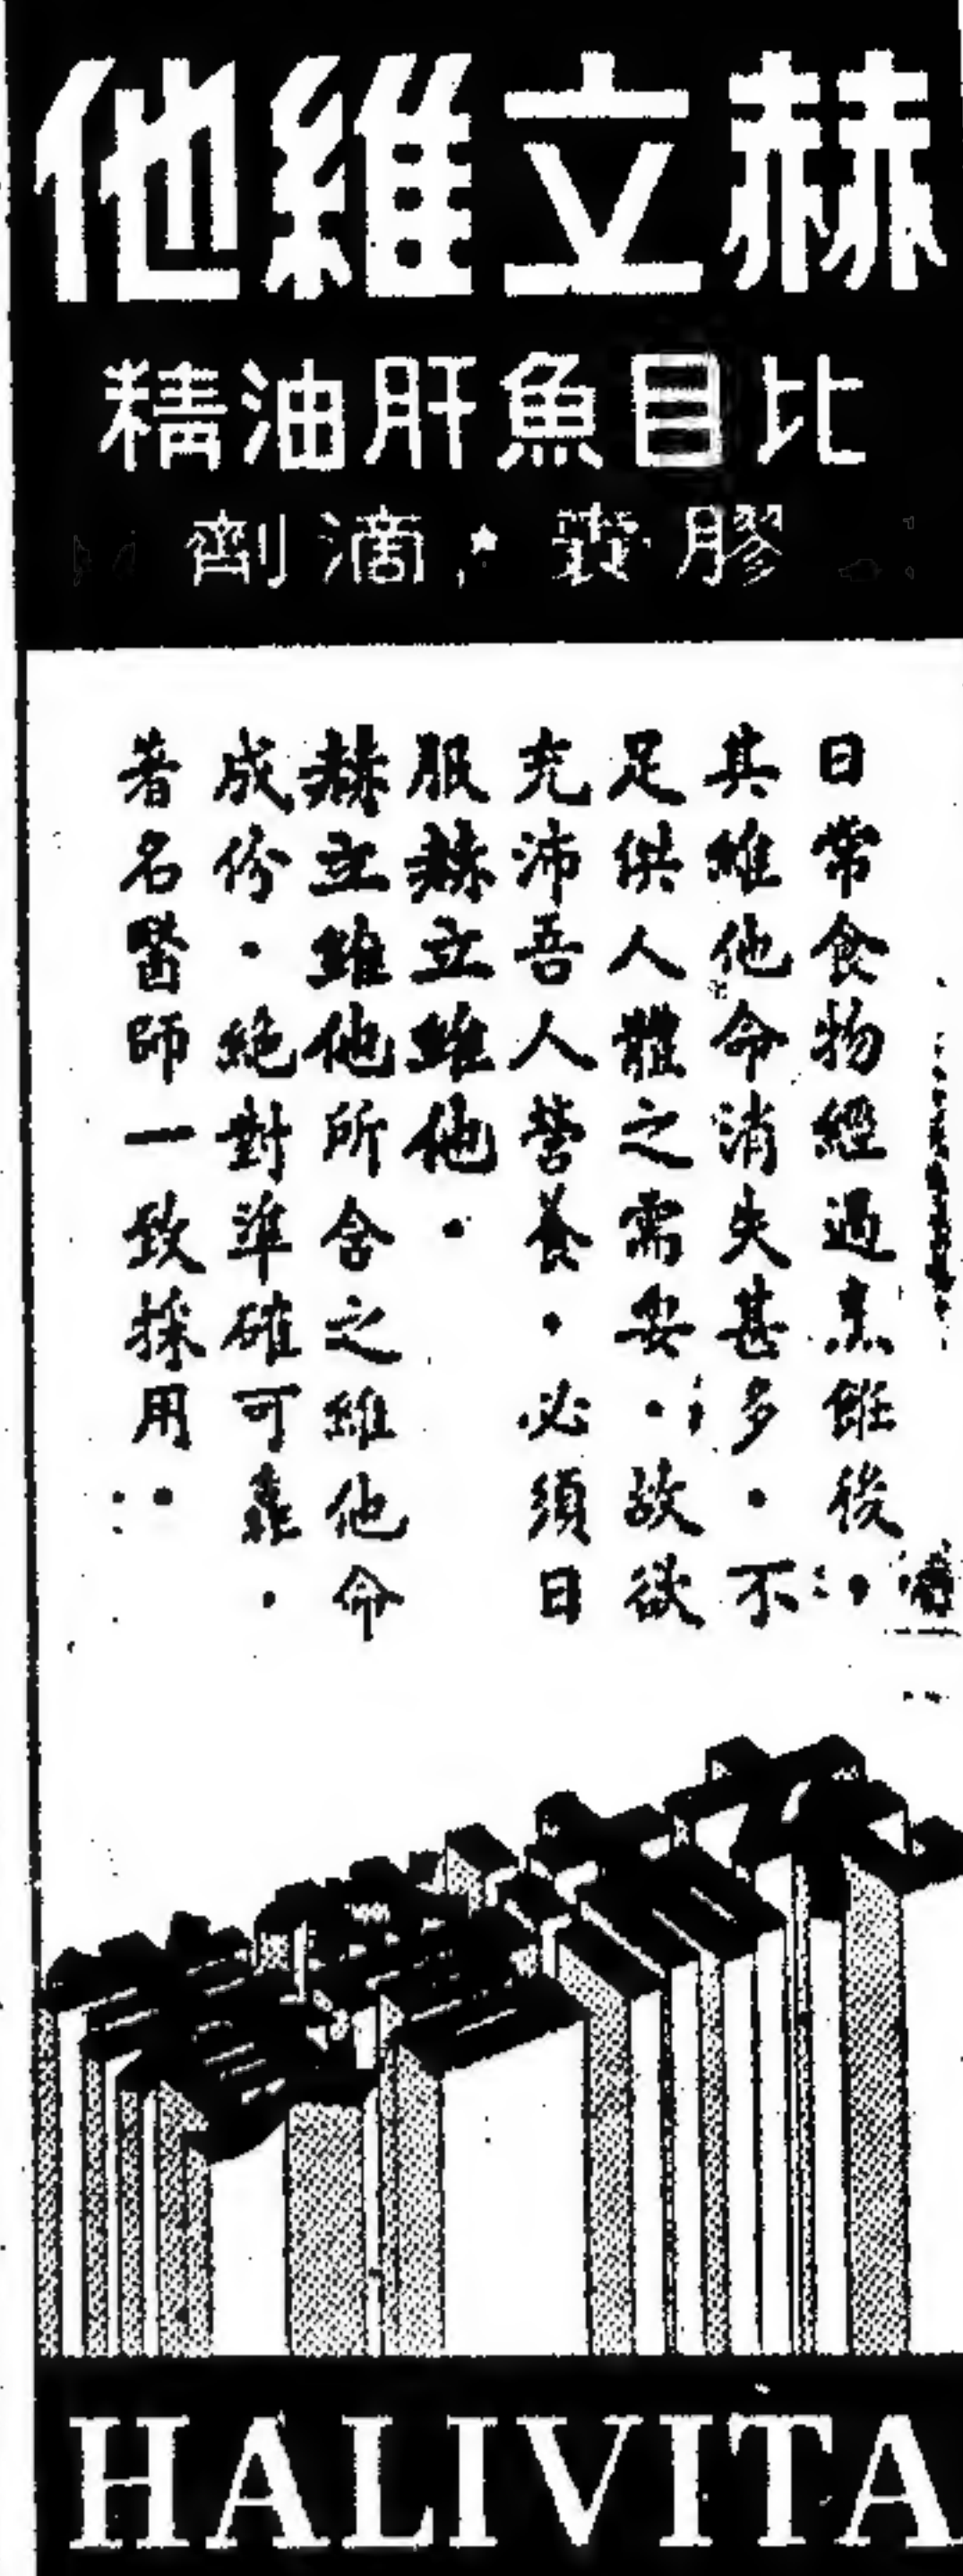 赫立維他
比目魚肝油精
膠囊・滴劑
日常食物經過烹飪後・
其維他命消失甚多・不
足供人體之需要・故欲
充沛吾人營養・必須日
服赫立維他・
赫立維他所含之維他命
成份・絕對準確可靠・
著名醫師一致採用・・
HALIVITA